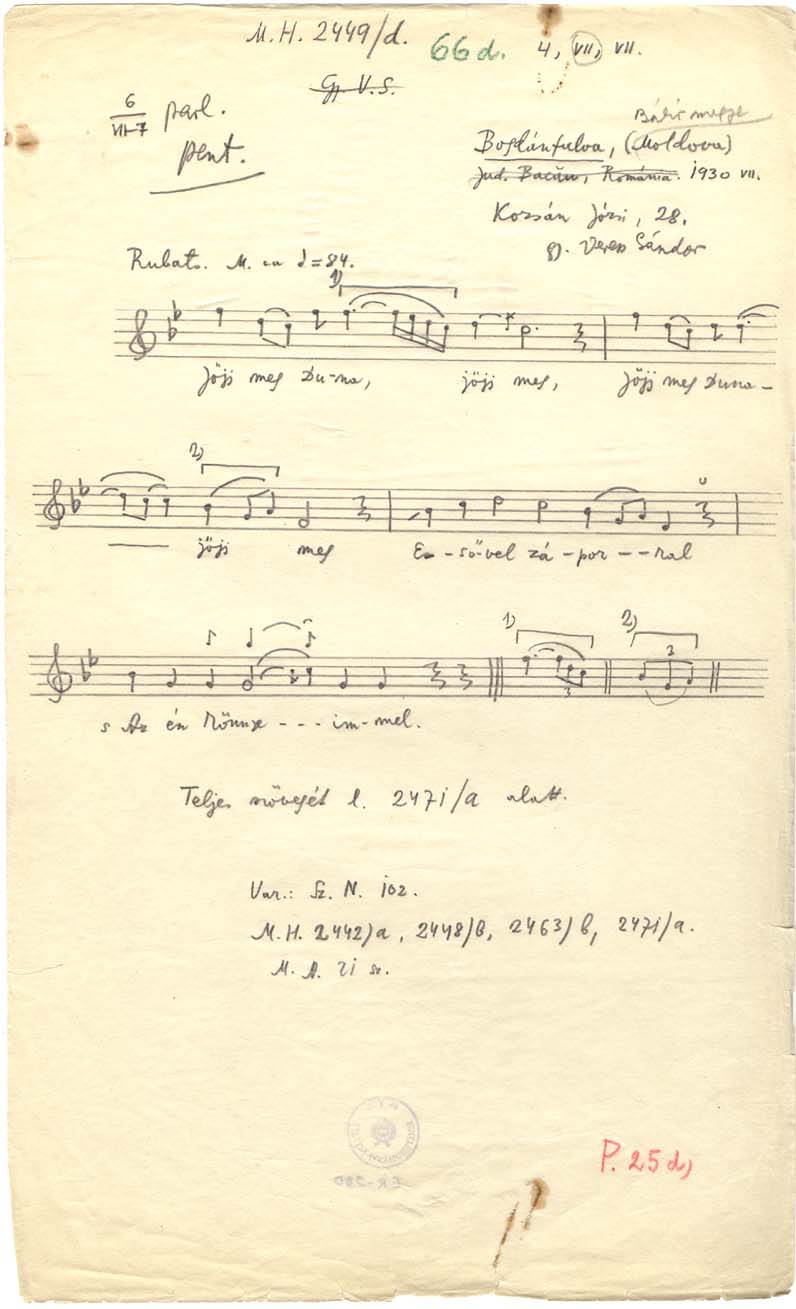 M.H. 2449/d. 66d. 4, VII, VII.
Gy. V.S.
6
VII-7 parl.
pent.
Bákó megye
Bogdánfalva, (Moldova)
Jud. Bacău, România. 1930 VII.
Kozsán Józsi, 28.
gy. Veress Sándor
Rubato. M. ca ♩=84.
1)
Jöjj meg Du-na, jöjj meg, Jöjj meg Duna-
2)
jöjj meg Es-sö-vel zá-por---ral
1) 2)
3 3
s Az én könnye---im-mel.
Teljes szövegét l. 2471/a alatt.
Var.: Sz. N. 102.
M.H. 2442/a, 2448/b, 2463/b, 2471/a.
P. 25d)